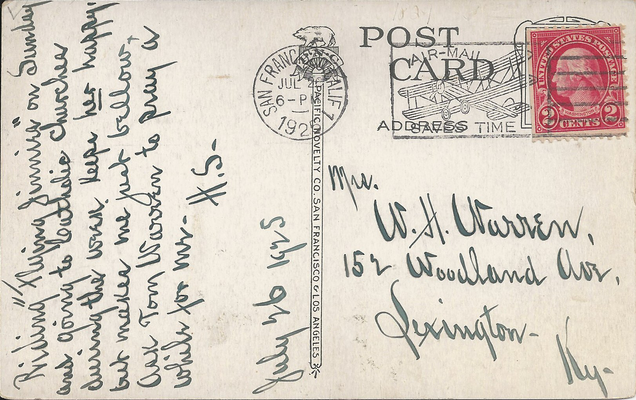 Riding "Fliing Jinnis" on Sunday
and going to Catholic Churches
during the week keeps her happy,
but makes me just bellow.
Ask Tom Warren to pray a
while for me - H.S-
July 26 1925
POST
CARD
ADDRESS
SAN FRANCISCO, CALIF.
JUL
6-PM
192
AIR-MAIL
SAVES TIME
UNITED STATES POSTAGE
2 CENTS 2
PACIFIC NOVELTY CO. SAN FRANCISCO & LOS ANGELES
Mrs.
W. H. Warren,
152 Woodland Ave,
Lexington-
Ky-